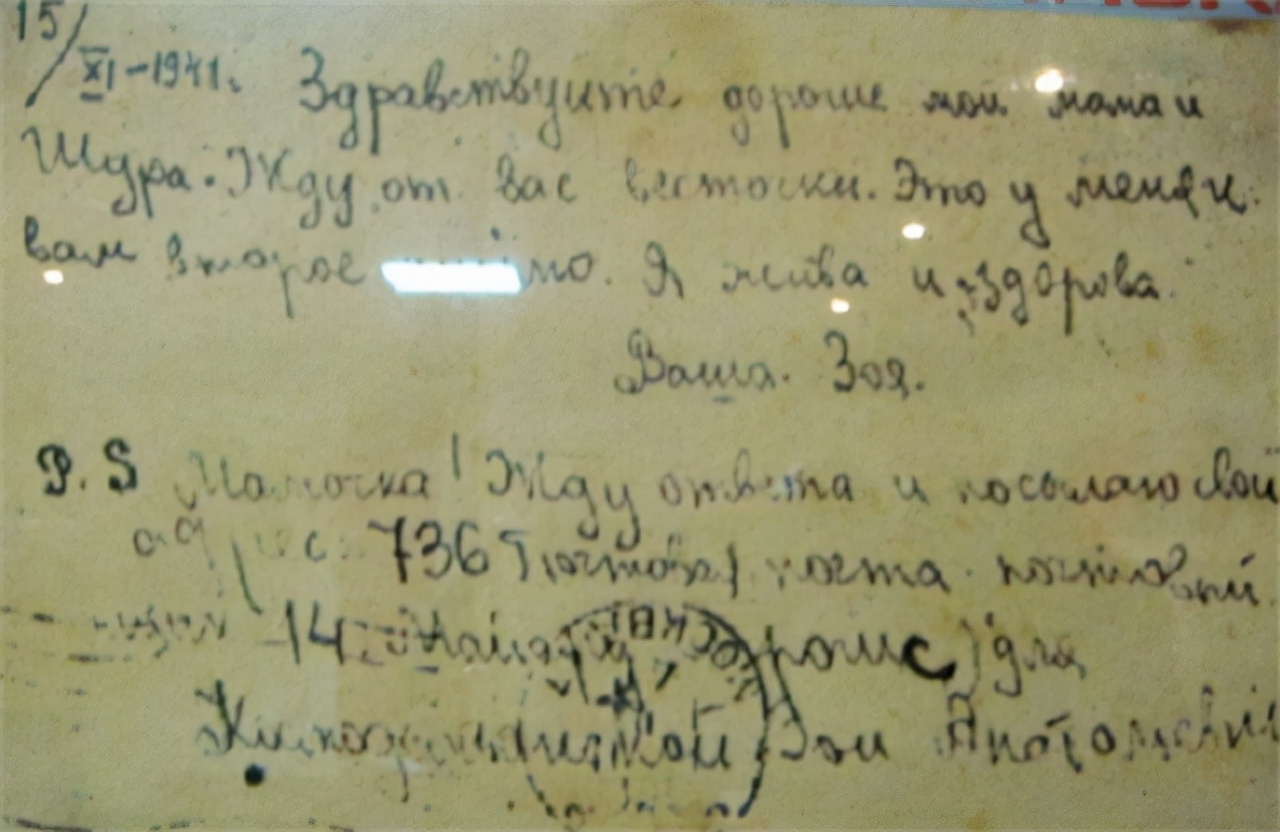 15/XI-1941. Здравствуйте дорогие мои мама и
Шура. Жду от вас весточки. Это у меня к
вам второе мо. Я жива и здорова.
Ваша Зоя.
P.S Мамочка! Жду ответа и посылаю свой
адрес: 736 почта почтовый
14 для
Зои Анатольевны